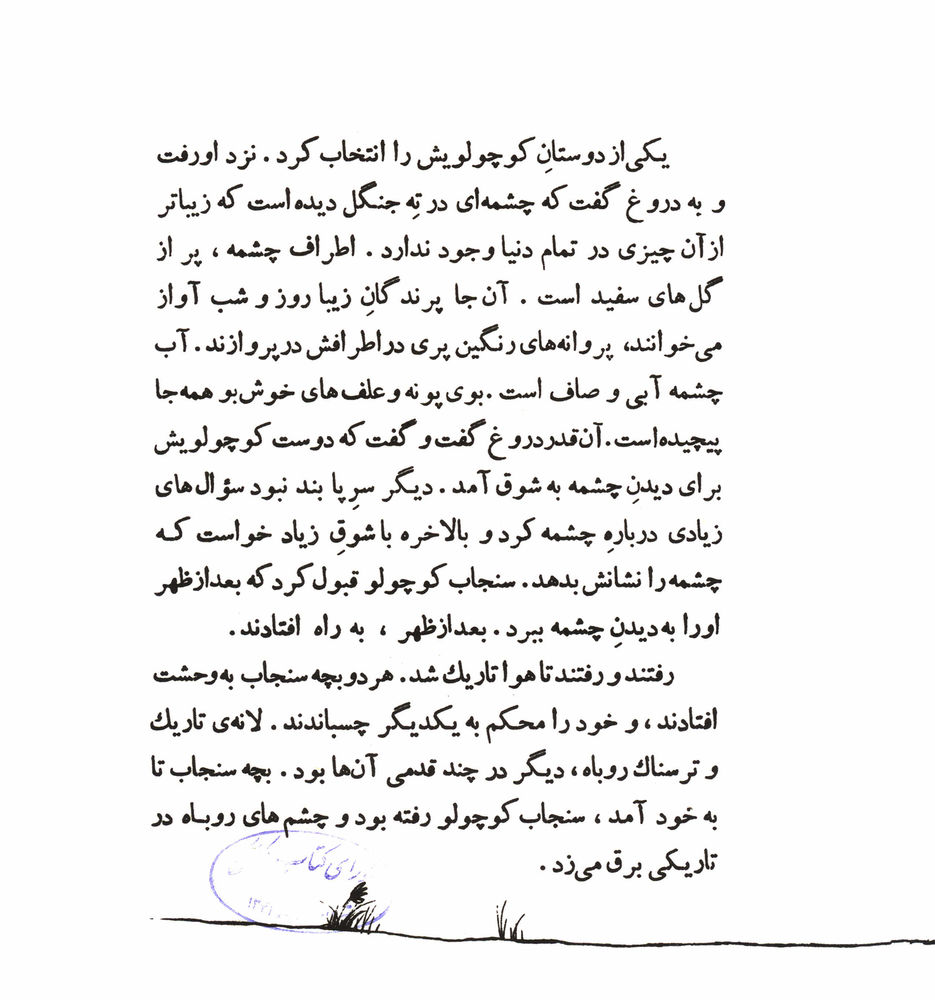 یکی از دوستانِ کوچولویش را انتخاب کرد. نزد او رفت
و به دروغ گفت که چشمه‌ای در تهِ جنگل دیده است که زیباتر
از آن چیزی در تمام دنیا وجود ندارد. اطراف چشمه، پر از
گل‌های سفید است. آن‌جا پرندگانِ زیبا روز و شب آواز
می‌خوانند، پروانه‌های رنگین پری در اطرافش در پروازند. آب
چشمه آبی و صاف است. بوی پونه و علف‌های خوش‌بو همه‌جا
پیچیده است. آن‌قدر دروغ گفت و گفت که دوست کوچولویش
برای دیدنِ چشمه به شوق آمد. دیگر سرِ پا بند نبود سؤال‌های
زیادی دربارهِ چشمه کرد و بالاخره با شوقِ زیاد خواست که
چشمه را نشانش بدهد. سنجاب کوچولو قبول کرد که بعدازظهر
او را به دیدنِ چشمه ببرد. بعدازظهر، به راه افتادند.
رفتند و رفتند تا هوا تاریك شد. هر دو بچه سنجاب به وحشت
افتادند، و خود را محکم به یکدیگر چسباندند. لانه‌ی تاریك
و ترسناك روباه، دیگر در چند قدمی آن‌ها بود. بچه سنجاب تا
به خود آمد، سنجاب کوچولو رفته بود و چشم‌های روباه در
تاریکی برق می‌زد.
کتاب